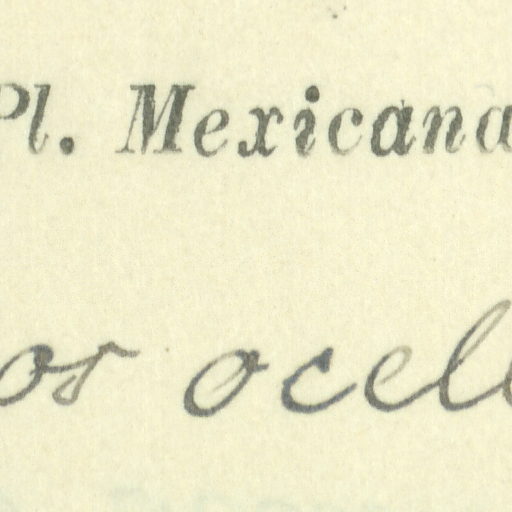 Pl. Mexicana
os ocell